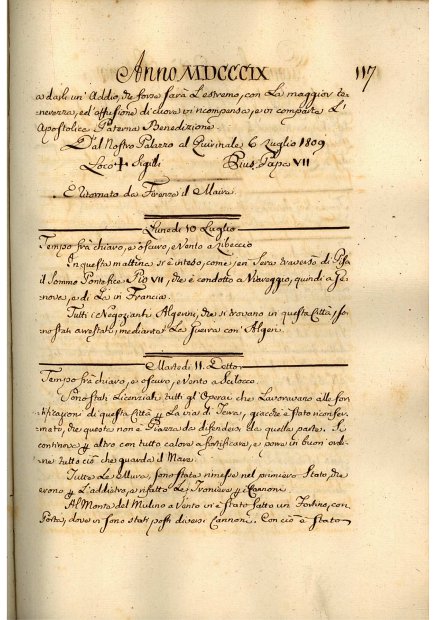 Anno MDCCCIX 117
a darli un' Addio, che forse sarà L'estremo, con La maggior te-
nerezza, ed effusione di cuore vi ricompensa, e vi comparte L'
Apostolica Paterna Benedizione.
Dal Nostro Palazzo al Quirinale 6 Luglio 1809
Loco + Sigilli Pius Papa VII
È ritornato da Firenze il Maire.
Lunedì 10 Luglio
Tempo frà chiaro, e oscuro, e Vento a Libeccio
In questa mattina si è inteso, come jeri Sera traversò di Pisa
il Sommo Pontefice Pio VII, che è condotto a Viareggio, quindi a Ge-
nova, e di La in Francia.
Tutti i Negozianti Algerini, che si trovano in questa Città, so-
no stati arrestati, mediante La Guerra con Algeri.
Martedì 11. Detto
Tempo frà chiaro, e oscuro, e Vento a Scilocco.
Sono stati Licenziati tutti gl'Operai che Lavoravano alle for-
tificazioni di questa Città p La via di Terra, giacchè è stato riconfer-
mato, che questa non è Piazza da difendersi da quella parte. Si
continova p altro con tutto calore a fortificare, e porre in buon ordi-
ne tutto ciò che guarda il Mare.
Tutte Le Mura, sono state rimesse nel primiero Stato, che
erono p L'addietro, e disfatto Le Troniere p i Cannoni.
Al Monte del Mulino a Vento vi è stato fatto un Fortino, con
Porta, dove vi sono stati posti diversi Cannoni. Con ciò è stato